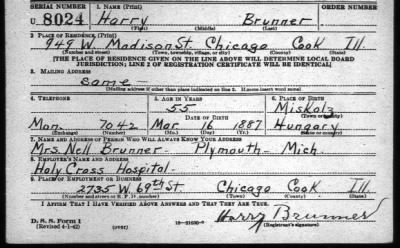 SERIAL NUMBER 1. NAME (Print) ORDER NUMBER
U 8024 Harry Brunner
(First) (Middle) (Last)
2. PLACE OF RESIDENCE (Print)
949 W. Madison St. Chicago Cook Ill.
(Number and street) (Town, township, village, or city) (County) (State)
[THE PLACE OF RESIDENCE GIVEN ON THE LINE ABOVE WILL DETERMINE LOCAL BOARD
JURISDICTION; LINE 2 OF REGISTRATION CERTIFICATE WILL BE IDENTICAL]
3. MAILING ADDRESS
same -
[Mailing address if other than place indicated on line 2. If same insert word same]
4. TELEPHONE 5. AGE IN YEARS 6. PLACE OF BIRTH
55 Miskolz
DATE OF BIRTH (Town or county)
Mon. 7042 Mar. 16 1887 Hungary
(Exchange) (Number) (Mo.) (Day) (Yr.) (State or country)
7. NAME AND ADDRESS OF PERSON WHO WILL ALWAYS KNOW YOUR ADDRESS
Mrs. Nell Brunner - Plymouth - Mich.
8. EMPLOYER'S NAME AND ADDRESS
Holy Cross Hospital -
9. PLACE OF EMPLOYMENT OR BUSINESS
2735 W. 69th St Chicago Cook Ill.
(Number and street or R. F. D. number) (Town) (County) (State)
I AFFIRM THAT I HAVE VERIFIED ABOVE ANSWERS AND THAT THEY ARE TRUE.
D. S. S. Form 1 Harry Brunner
(Revised 4-1-42) (over) (Registrant's signature)